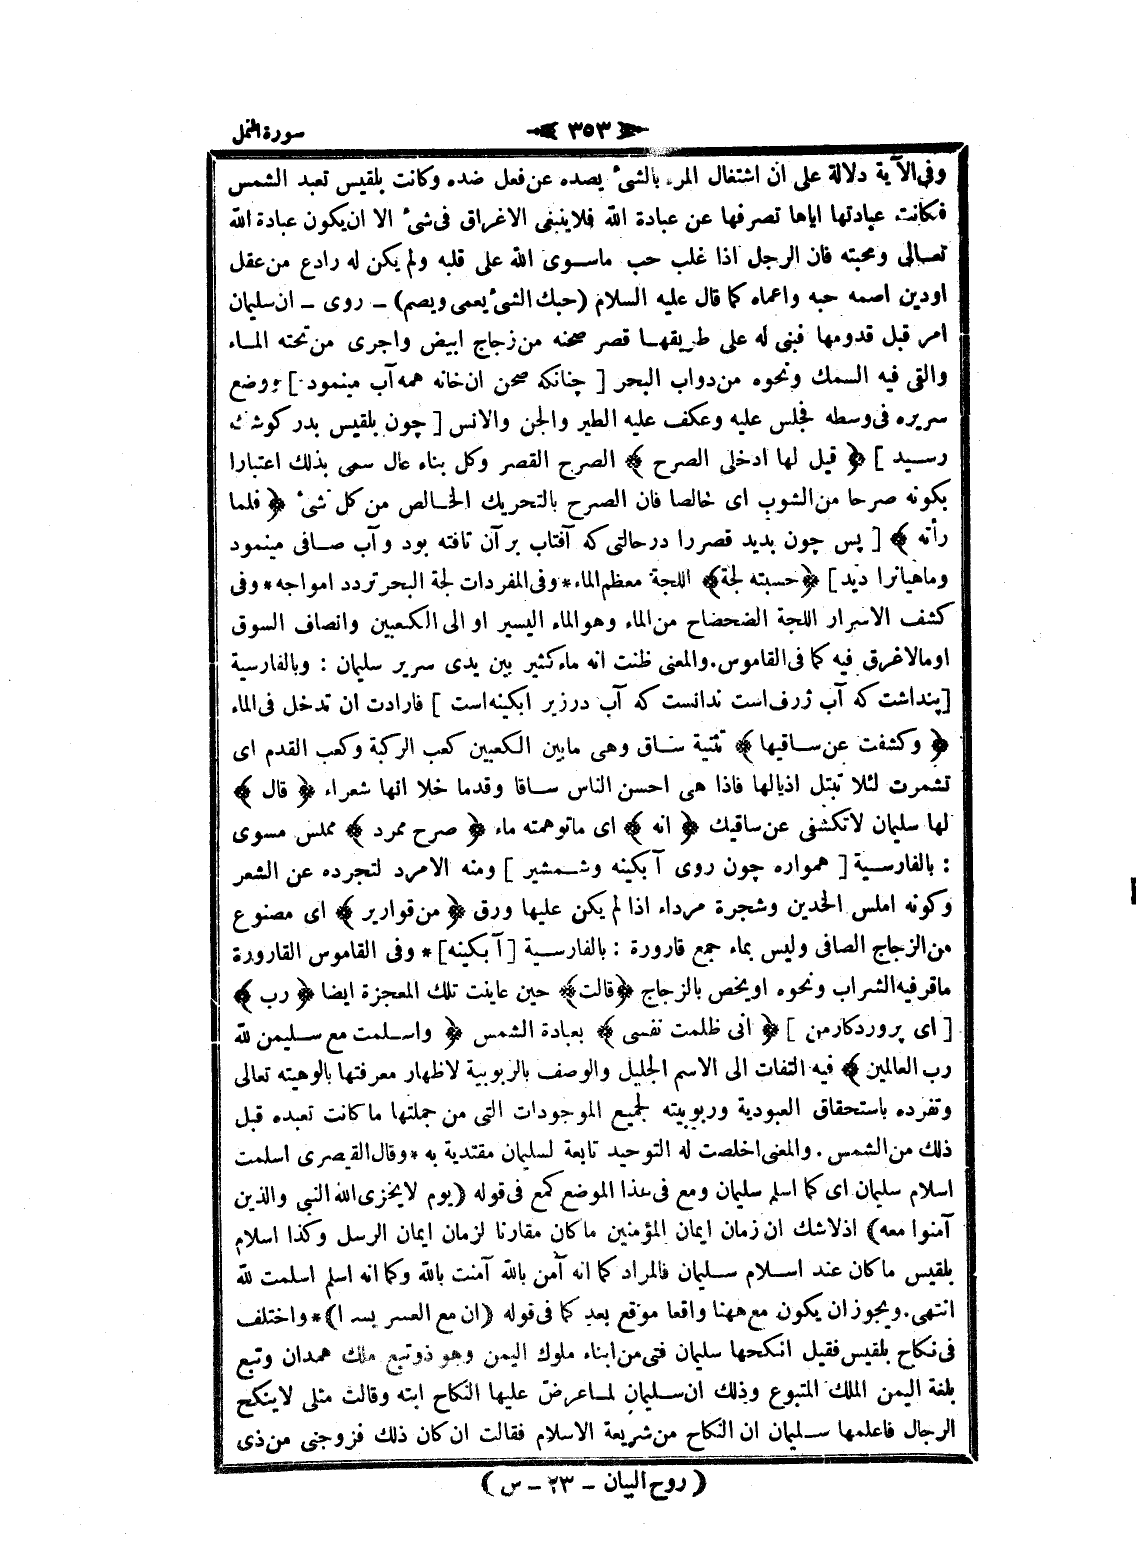 سورة النمل
﴿ ٣٥٣ ﴾
وفى الآية دلالة على ان اشتغال المرء بالشئ يصده عن فعل ضده وكانت بلقيس تعبد الشمس
فكانت عبادتها اياها تصرفها عن عبادة الله فلاينبغى الاغراق فى شئ الا ان يكون عبادة الله
تعالى ومحبته فان الرجل اذا غلب حب ماسوى الله على قلبه ولم يكن له رادع من عقل
اودين اصمه حبه واعماه كما قال عليه السلام (حبك الشئ يعمى ويصم) ــ روى ــ ان سليمان
امر قبل قدومها فبنى له على طريقها قصر صحنه من زجاج ابيض واجرى من تحته الماء
والقى فيه السمك ونحوه من دواب البحر [ چنانكه صحن ان خانه همه آب مينمود ] ووضع
سريره فى وسطه فجلس عليه وعكف عليه الطير والجن والانس [ چون بلقيس بدر كوشك
رسيد ] ﴿ قيل لها ادخلى الصرح ﴾ الصرح القصر وكل بناء عال سمى بذلك اعتبارا
بكونه صرحا من الشوب اى خالصا فان الصرح بالتحريك الخالص من كل شئ ﴿ فلما
رأته ﴾ [ پس چون بديد قصررا درحالتى كه آفتاب برآن تافته بود وآب صافى مينمود
وماهيانرا ديد ] ﴿ حسبته لجة ﴾ اللجة معظم الماء * وفى المفردات لجة البحر تردد امواجه * وفى
كشف الاسرار اللجة الضحضاح من الماء وهو الماء اليسير او الى الكعبين وانصاف السوق
اومالاغرق فيه كما فى القاموس . والمعنى ظنت انه ماء كثير بين يدى سرير سليمان : وبالفارسية
[پنداشت كه آب ژرف است ندانست كه آب درزير ابكينه است ] فارادت ان تدخل فى الماء
﴿ وكشفت عن ساقيها ﴾ تثنية ساق وهى مابين الكعبين كعب الركبة وكعب القدم اى
تشمرت لئلا تبتل اذيالها فاذا هى احسن الناس ساقا وقدما خلا انها شعراء ﴿ قال ﴾
لها سليمان لاتكشفى عن ساقيك ﴿ انه ﴾ اى ماتوهمته ماء ﴿ صرح ممرد ﴾ مملس مسوى
: بالفارسية [ همواره چون روى آبكينه وشمشير ] ومنه الامرد لتجرده عن الشعر
وكونه املس الخدين وشجرة مرداء اذا لم يكن عليها ورق ﴿ من قوارير ﴾ اى مصنوع
من الزجاج الصافى وليس بماء جمع قارورة : بالفارسية [آبكينه] * وفى القاموس القارورة
ماقر فيه الشراب ونحوه او يخص بالزجاج ﴿ قالت ﴾ حين عاينت تلك المعجزة ايضا ﴿ رب ﴾
[ اى پروردكار من ] ﴿ انى ظلمت نفسى ﴾ بعبادة الشمس ﴿ واسلمت مع سليمن لله
رب العالمين ﴾ فيه التفات الى الاسم الجليل والوصف بالربوبية لاظهار معرفتها بالوهيته تعالى
وتفرده باستحقاق العبودية وربوبيته لجميع الموجودات التى من جملتها ماكانت تعبده قبل
ذلك من الشمس . والمعنى اخلصت له التوحيد تابعة لسليمان مقتدية به * وقال القيصرى اسلمت
اسلام سليمان اى كما اسلم سليمان ومع فى هذا الموضع كمع فى قوله (يوم لايخزى الله النبى والذين
آمنوا معه) اذلاشك ان زمان ايمان المؤمنين ماكان مقارنا لزمان ايمان الرسل وكذا اسلام
بلقيس ماكان عند اسلام سليمان فالمراد كما انه آمن بالله آمنت بالله وكما انه اسلم اسلمت لله
انتهى . ويجوز ان يكون مع ههنا واقعا موقع بعد كما فى قوله (ان مع العسر يسرا) * واختلف
فى نكاح بلقيس فقيل انكحها سليمان فتى من ابناء ملوك اليمن وهو ذوتبع ملك همدان وتبع
بلغة اليمن الملك المتبوع وذلك ان سليمان لماعرض عليها النكاح ابته وقالت مثلى لاينكح
الرجال فاعلمها سليمان ان النكاح من شريعة الاسلام فقالت ان كان ذلك فزوجنى من ذى
( روح البيان ــ ٢٣ ــ س )